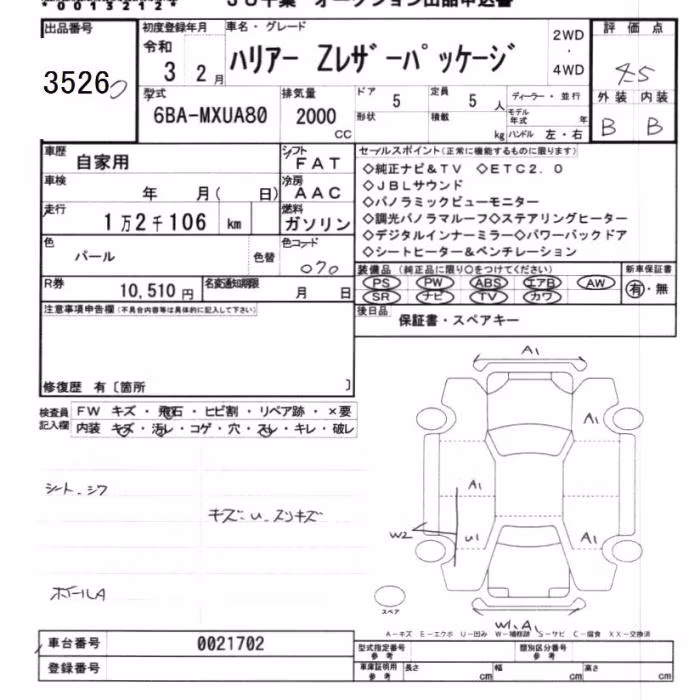 *00152124*
JU千葉 オークション出品申込書
出品番号 3526
初度登録年月 令和 3 2月
車名・グレード ハリアー Zレザーパッケージ
2WD・4WD
評価点 4.5
外装 内装
B B
型式 6BA-MXUA80
排気量 2000 CC
ドア 5 形状
定員 5 人 積載 kg
ディーラー・並行
モデル年式 年
ハンドル 左・右
車歴 自家用
シフト FAT
車検 年 月( 日)
冷房 AAC
走行 1万2千106 km
燃料 ガソリン
色 パール 色替
色コード 070
R券 10,510円
名変通知期限 月 日
セールスポイント(正常に機能するものに限ります)
◇純正ナビ&TV ◇ETC2.0
◇JBLサウンド
◇パノラミックビューモニター
◇調光パノラマルーフ◇ステアリングヒーター
◇デジタルインナーミラー◇パワーバックドア
◇シートヒーター&ベンチレーション
装備品(純正品に限り○をつけてください)
新車保証書
PS PW ABS エアB AW
SR ナビ TV カワ
有・無
後日品 保証書・スペアキー
注意事項申告欄(不具合内容等は具体的に記入して下さい)
修復歴 有〔箇所 〕
検査員記入欄
FW キズ・飛石・ヒビ割・リペア跡・×要
内装 キズ・汚レ・コゲ・穴・スレ・キレ・破レ
シート.シワ
キズ.u.スリキズ
ホイールA
A1
A1
A1
W2
u1
A1
W1.A1
スペア
A−キズ E−エクボ U−凹み W−補修跡 S−サビ C−腐食 XX−交換済
車台番号 0021702
登録番号
型式指定番号 参考
類別区分番号 参考
車庫証明用 参考 長さ cm 幅 cm 高さ cm